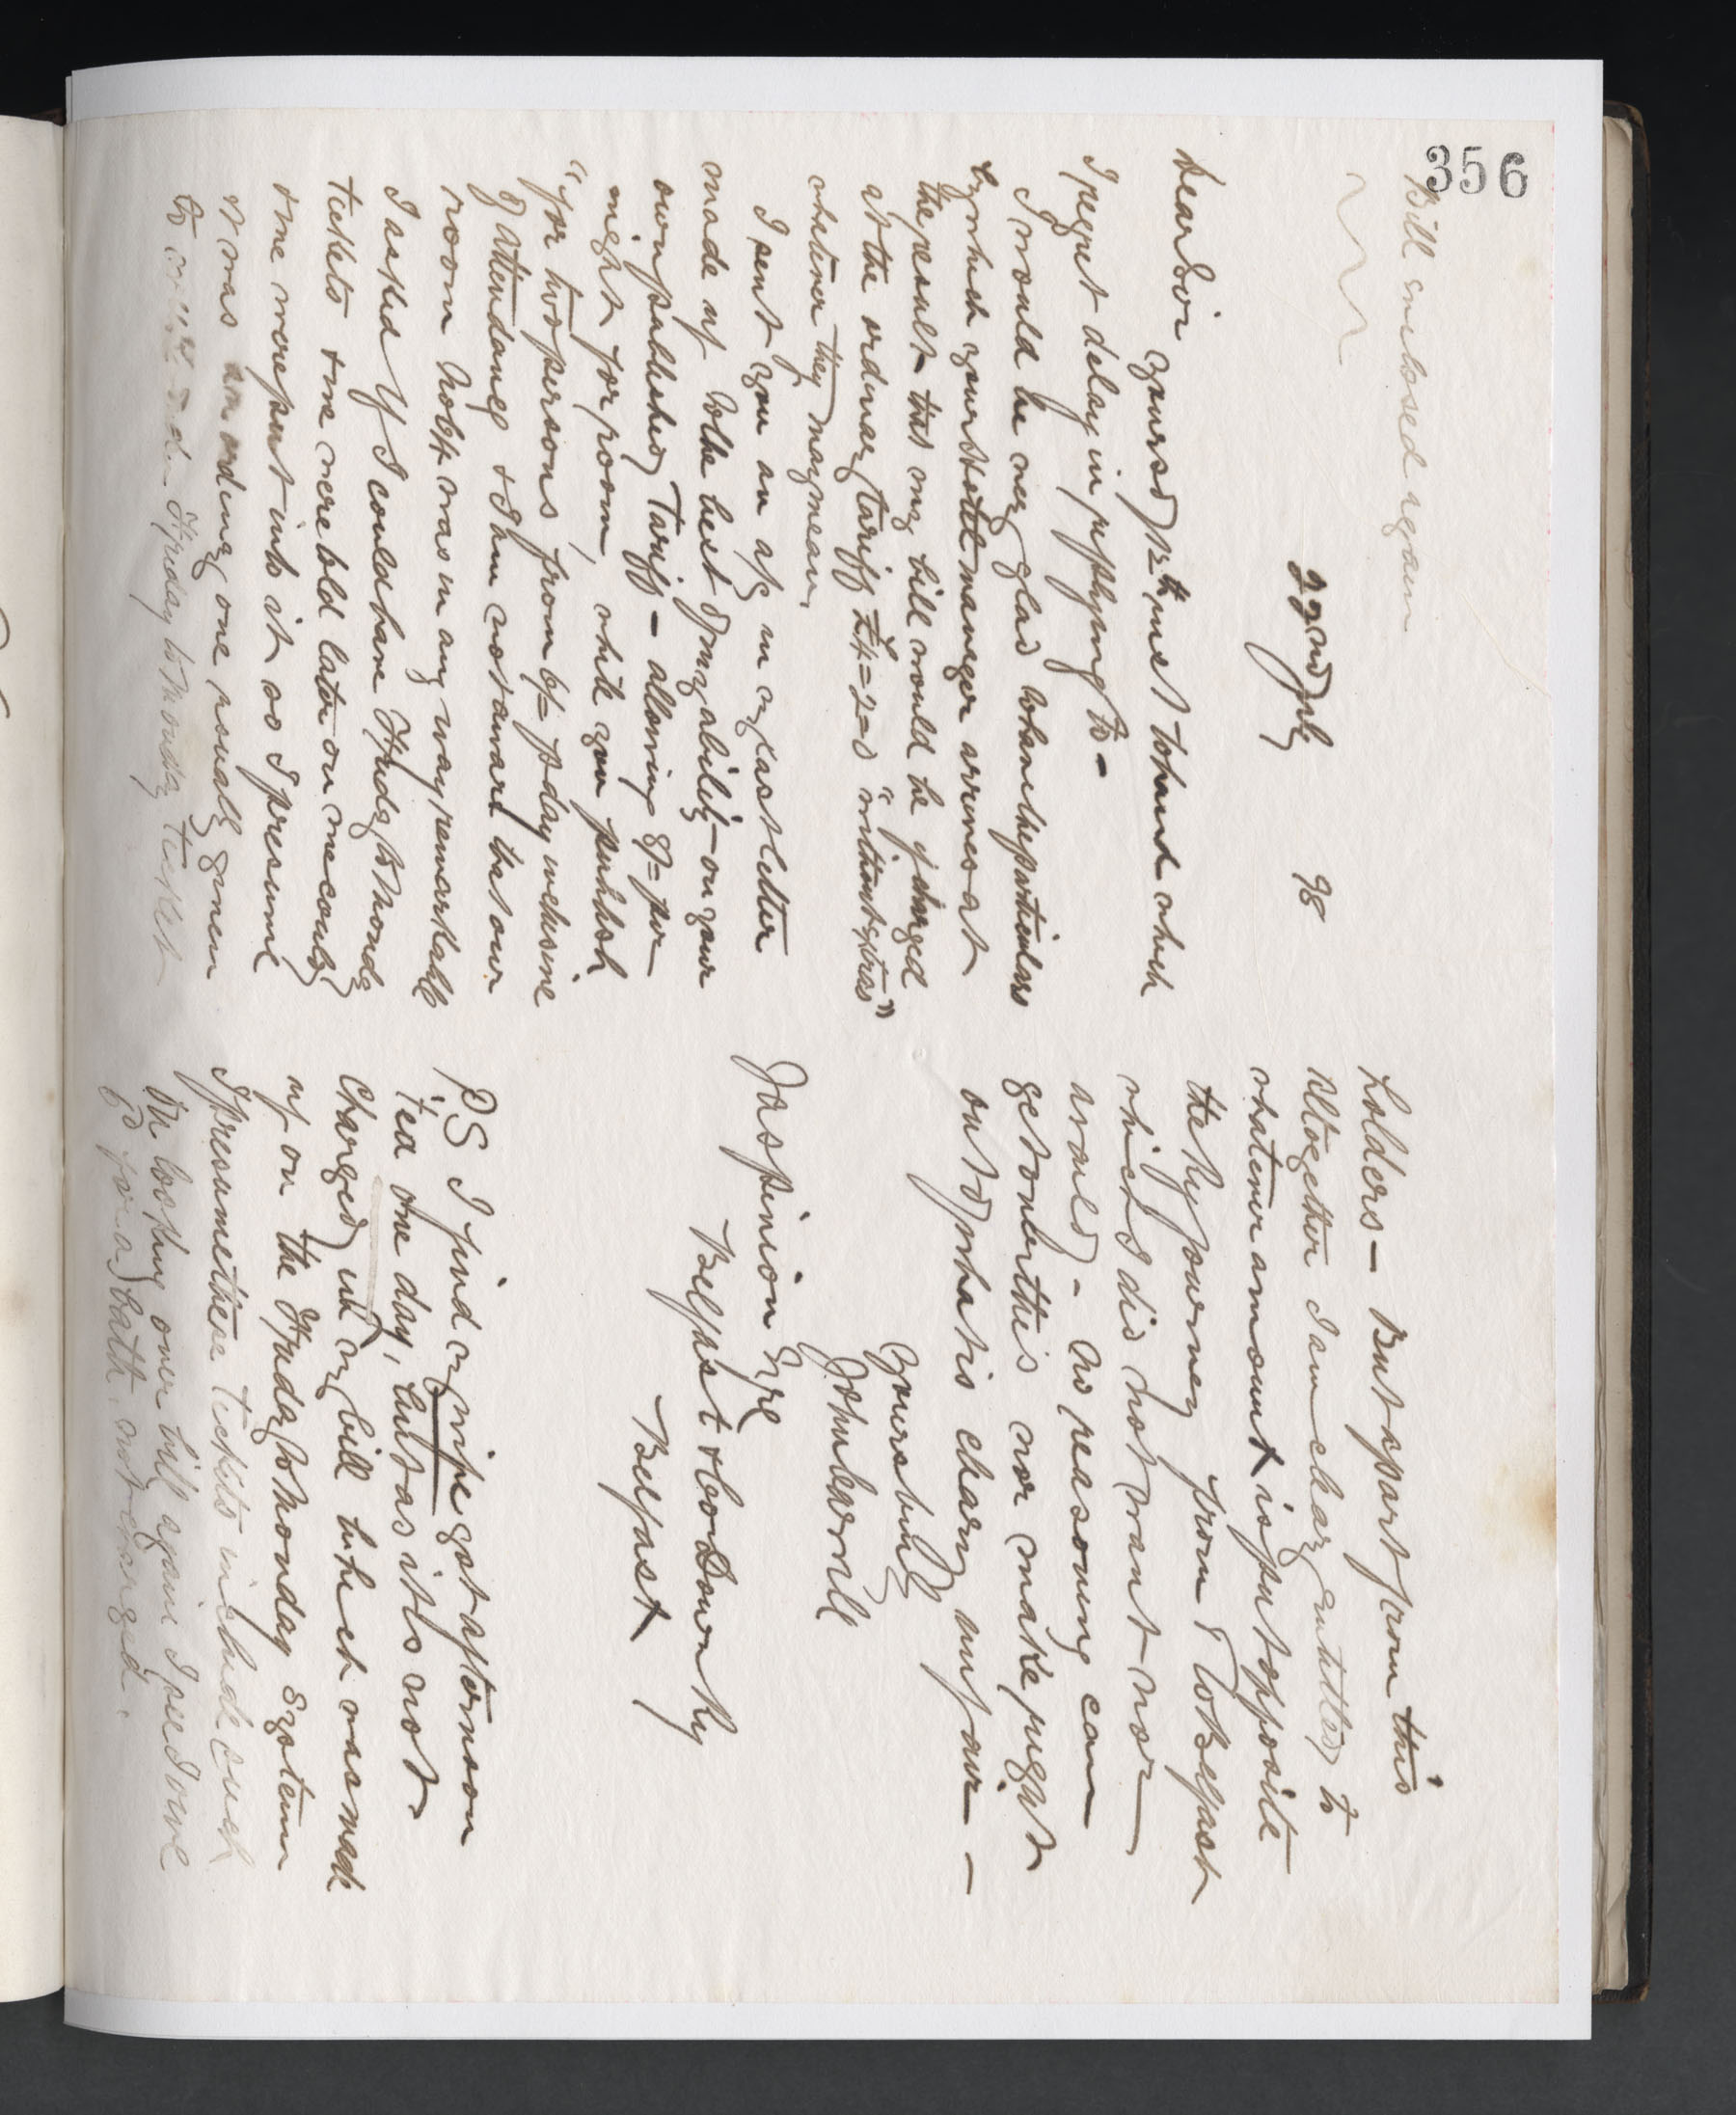 356
Bill enclosed again
22nd July 98
Dear Sir
Yours of 12th inst to hand which
I regret delay in replying to -
I would be very glad to have the particulars
by which your Hotel manager arrives at
the result that my bill would be if charged
at the ordinary tariff £4=2=0 "without extras"
whatever they may mean,
I sent you an a/c in my last letter
made up to the best of my ability - on your
own published Tariff - allowing 8/= per
night for room, which you publish
"for two persons from 6/= p day inclusive
of attendance & I am not aware that our
room No 64 was in any way remarkable
I asked if I could have Friday to Monday
tickets & we were told later on we could,
& we were put into it so I presume
it was an ordinary one usually given
to Friday to Monday ticket
holders - But apart from this
altogether I am clearly entitled to
whatever amount is put opposite
the Ry journey from & to Belfast
which I did not want nor
avail - No reasoning can
get over this nor make right
out of what is clearly unfair -
Yours truly
John Carroll
Jas Pinion Esqre
Belfast & Co Down Ry
Belfast
PS I find my wife got afternoon
tea one day, but as it is not
charged in my bill which was made
up on the Friday to Monday system
I presume these tickets include such
On looking over bill again I see I owe
for a bath not charged.